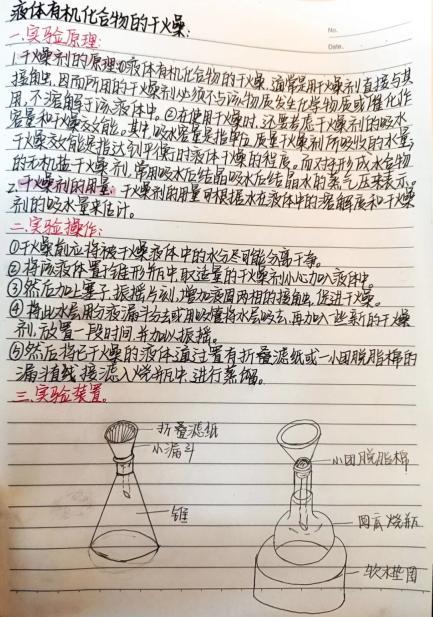 液体有机化合物的干燥:
No.
Date.
一.实验原理:
1.干燥剂的原理:①液体有机化合物的干燥,通常是用干燥剂直接与其
接触,因而所用的干燥剂必须不与该物质发生化学物质或催化作
用,不溶解于该液体中。②在使用干燥时,还要考虑干燥剂的吸水
容量和干燥效能。其中吸水容量是指单位质量干燥剂所吸收的水量,
干燥效能是指达到平衡时液体干燥的程度。而对于形成水合物
的无机盐干燥剂,常用吸水后结晶吸水后结晶水的蒸气压来表示;
2.干燥剂的用量:干燥剂的用量可根据水在液体中的溶解度和干燥
剂的吸水量来估计。
二.实验操作:
①干燥前应将被干燥液体中的水分尽可能分离干净。
②将该液体置于锥形瓶中取适量的干燥剂小心加入液体中。
③然后加上塞子,振摇片刻,增加液固两相的接触,促进干燥。
④将出水层用分液漏斗分去或用吸管将水层吸去,再加入一些新的干燥
剂,放置一段时间,并加以振摇。
⑤然后将已干燥的液体通过置有折叠滤纸或一小团脱脂棉的
漏斗直接滤入烧瓶中,进行蒸馏。
三.实验装置。
折叠滤纸
小漏斗
锥
小团脱脂棉
圆底烧瓶
软木垫圈